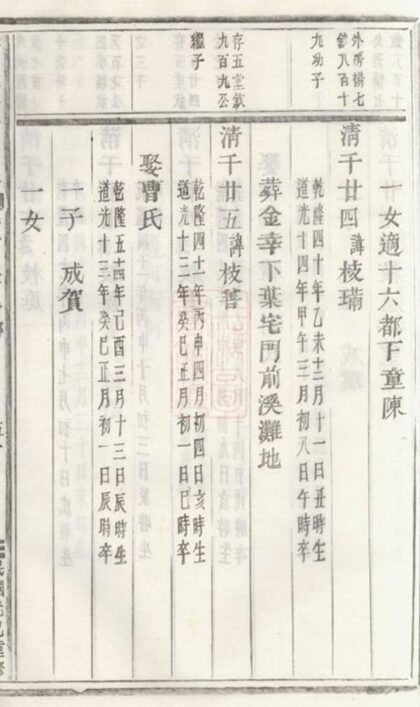 一女適十六都下童陳
外房楊七
欽八百十
九幼子
清千廿四諱枝瑞
乾隆四十年乙未十二月十一日丑時生
道光十四年甲午三月初八日午時卒
葬金幸下葉宅門前溪灘地
存五堂欽
九百九公
繼子
清千廿五諱枝普
乾隆四十一年丙申四月初四日亥時生
道光十三年癸巳正月初一日巳時卒
娶曹氏
乾隆五十四年己酉三月十三日辰時生
道光十三年癸巳正月初一日辰時卒
一子 成賀
一女